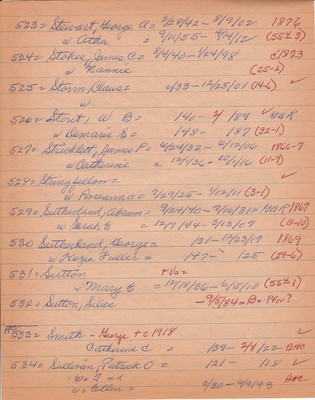 523= Stewart, George A= 2/28/42- 8/9/02 1876
w Atha = 9/11/55- 9/4/12 ✓ (55±3)
524= Stokes, James C= 8/4/40- 1/24/98 c/1873
w Nannie (25-2)
525= Storm, Claus= c/33- 12/25/01 (14-6) ✓
w
526= Strut, W B= 140- 2/ 189 ✓ MaR
w Demaris E= 148- 187 (32-1)
527= Stricklett, James P= 6/24/32- 6/12/06 1866-7
w Catherine = 12/1/36- 10/1/16 (11-9)
528= Stringfellow= ✓
w Roseanna= 9/29/25- 4/12/11 (3-1)
529= Sutherland, Abram= 9/24/40- 9/16/31= MaR 1867
w Sarah E = 12/7/44- 3/13/07 (13-10)
530 Sutherland, George= 131- 12/23/17 1869
w Kezia Fuller= 147- 125 (29-6)
531= Sutton + Va= ✓
w Mary E = 12/18/26- 6/5/10 (55±1)
532= Sutton, Silas - 9/5/84= B=
533= Smith - George + c 1918 ✓
Catherine C = 139- 2/8/22 BAC
534= Sullivan, Patrick O = 121- 118 ✓
w= Ellen= 3/30- 9/9/93 BAC